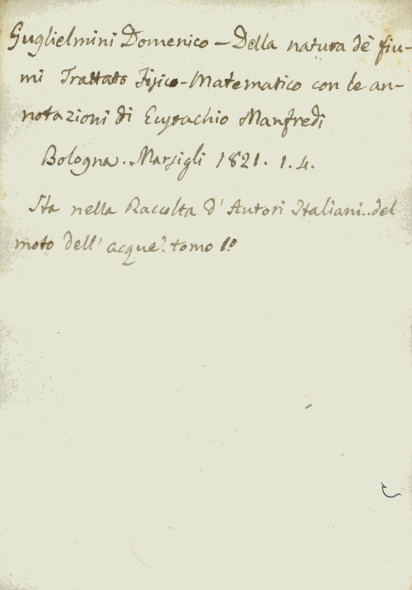 Guglielmini Domenico - Della natura dè fiu-
mi Trattato Fisico-Matematico con le an-
notazioni di Eustachio Manfredi
Bologna. Marsigli 1821. 1.4.
Sta nella Raccolta d'Autori Italiani..del
moto dell'acque. tomo 1º